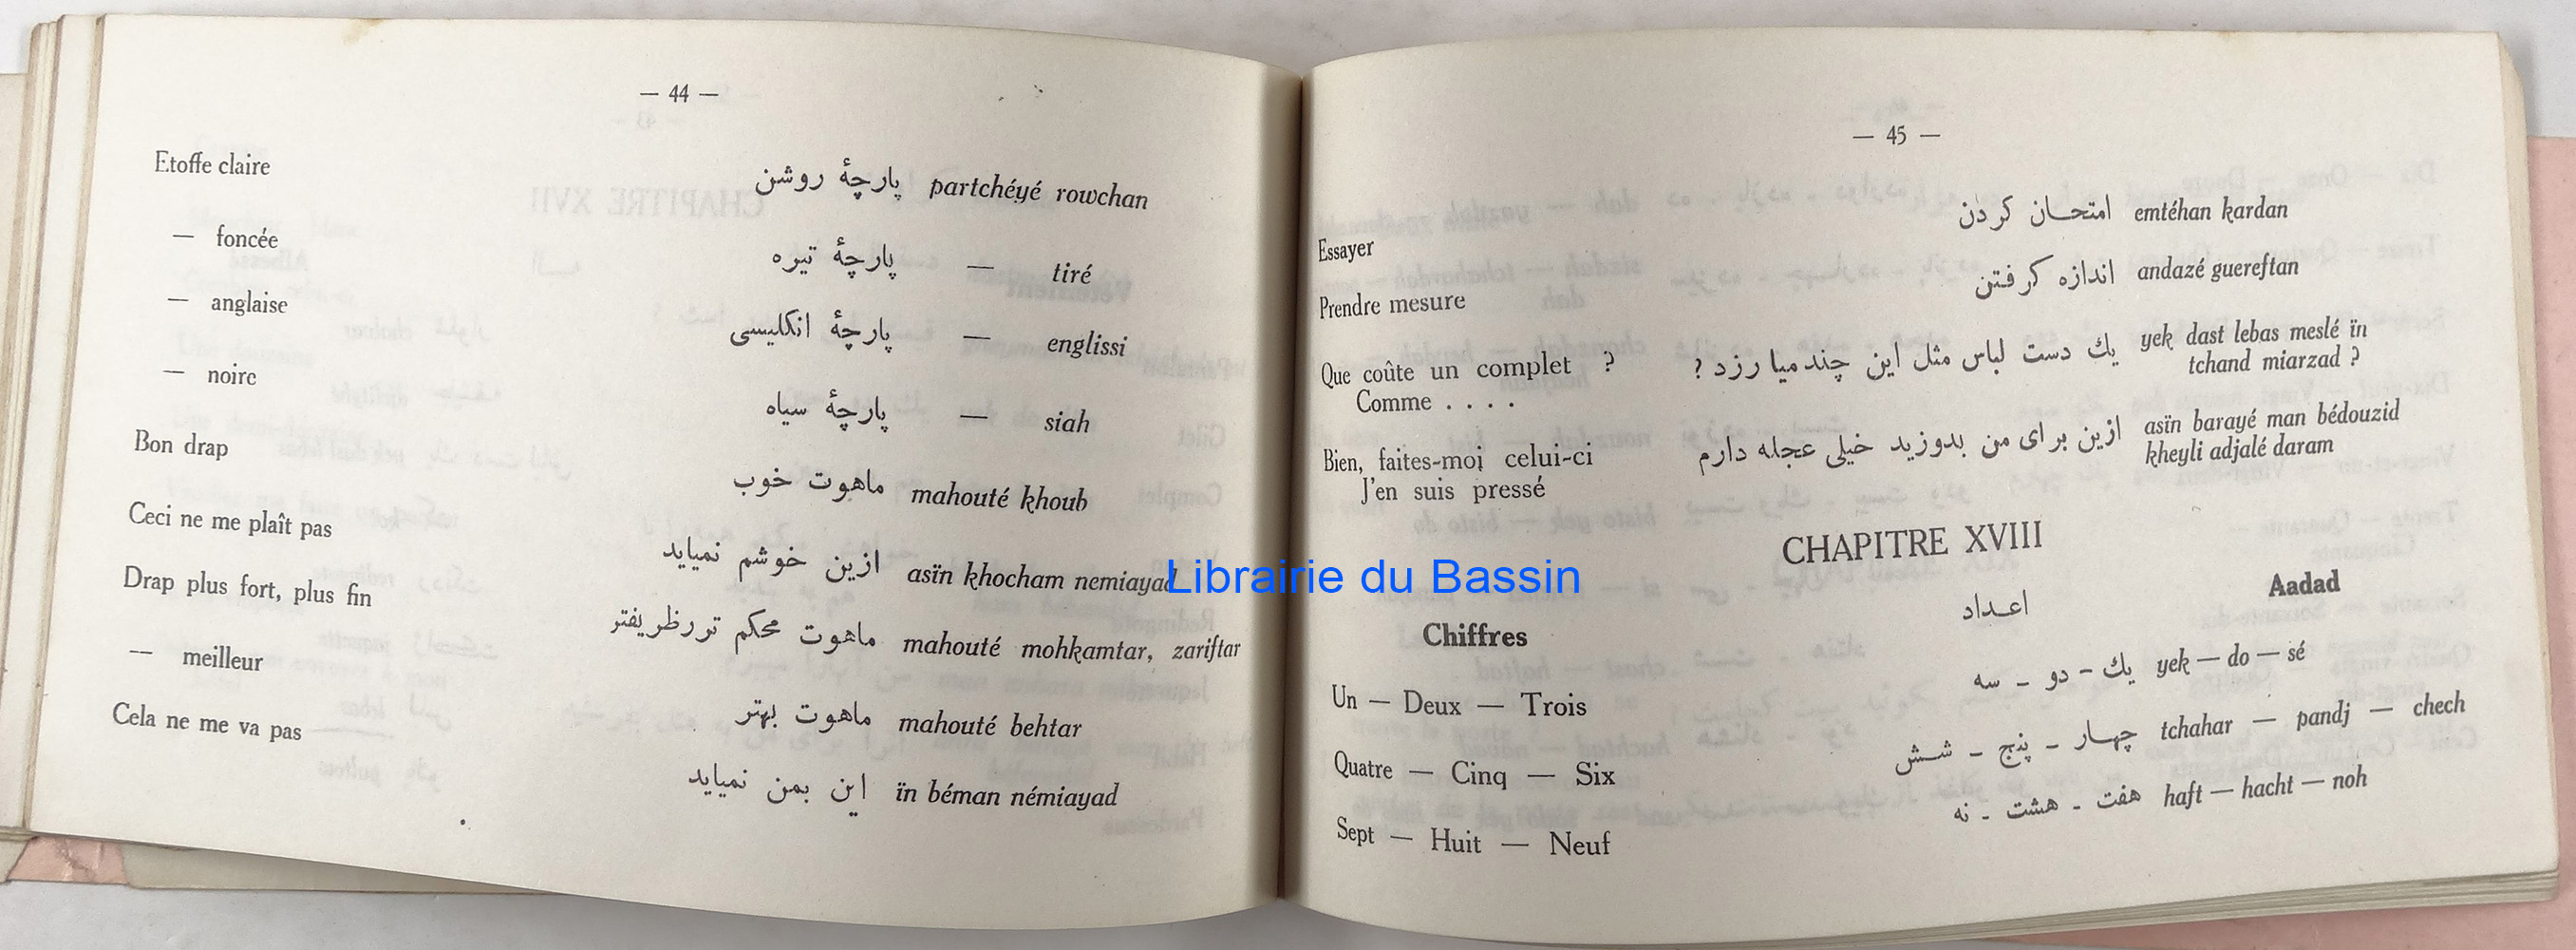 — 44 —
Etoffe claire پارچهٔ روشن partchéyé rowchan
— foncée پارچهٔ تیره — tiré
— anglaise پارچهٔ انكلیسی — englissi
— noire پارچهٔ سیاه — siah
Bon drap ماهوت خوب mahouté khoub
Ceci ne me plaît pas ازین خوشم نمیاید asïn khocham nemiayad
Drap plus fort, plus fin ماهوت محكم تر رظریفتر mahouté mohkamtar, zariftar
— meilleur ماهوت بهتر mahouté behtar
Cela ne me va pas این بمن نمیاید ïn béman némiayad
— 45 —
Essayer امتحان كردن emtéhan kardan
Prendre mesure اندازه كرفتن andazé guereftan
Que coûte un complet ? یك دست لباس مثل این چند میا رزد ? yek dast lebas meslé ïn
Comme . . . . tchand miarzad ?
Bien, faites-moi celui-ci ازین برای من بدوزید خیلی عجله دارم asïn barayé man bédouzid
J'en suis pressé kheyli adjalé daram
CHAPITRE XVIII
Chiffres اعداد Aadad
Un — Deux — Trois یك - دو - سه yek — do — sé
Quatre — Cinq — Six چهار - پنج - شش tchahar — pandj — chech
Sept — Huit — Neuf هفت - هشت - نه haft — hacht — noh
Librairie du Bassin